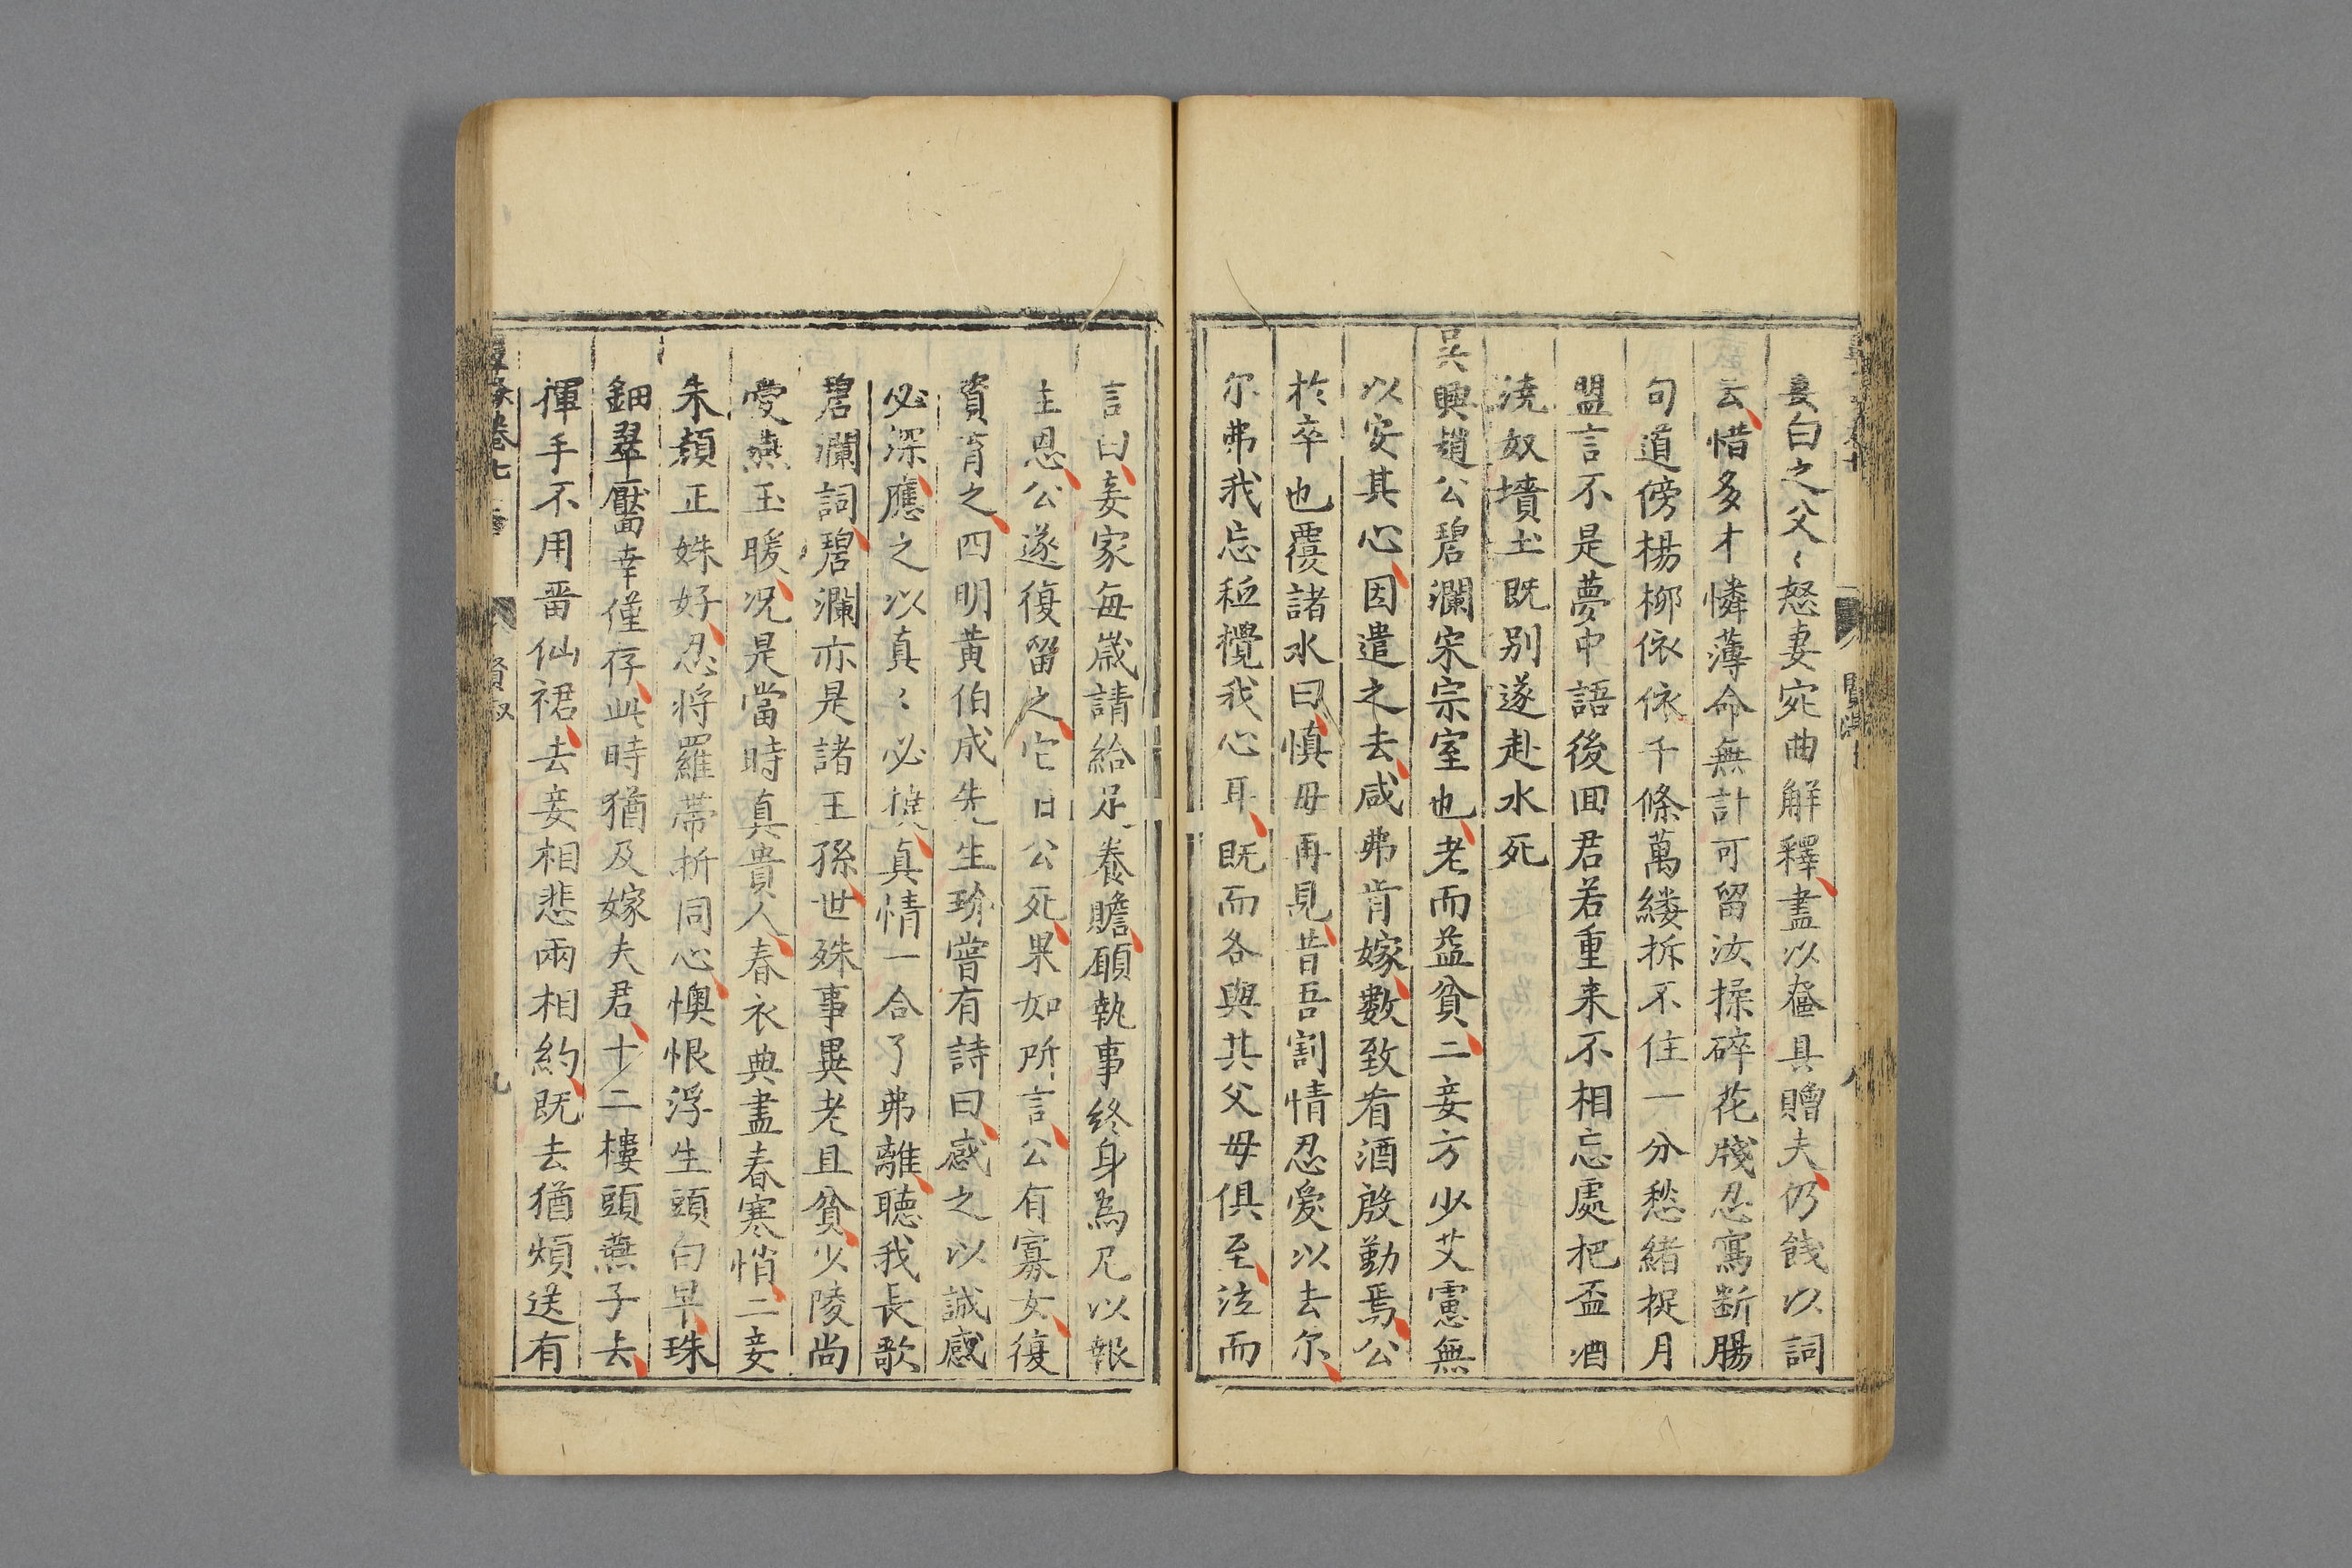 妻白之父〻怒妻宛曲解釋盡以奩具贈夫仍餞以詞
云惜多才憐薄命無計可留汝揉碎花牋忍寫斷腸
句道傍楊柳依依千條萬縷拆不住一分愁緒捉月
盟言不是夢中語後囬君若重来不相忘處把盃酒
澆奴墳土既别遂赴水死
吳興趙公碧瀾宋宗室也老而益貧二妾方少艾慮無
以安其心因遣之去咸弗肯嫁數致肴酒殷勤焉公
於卒也覆諸水曰慎毋再見昔吾割情忍愛以去尔
尔弗我忘秪攪我心耳既而各與其父母俱至泣而
言曰妾家每嵗請給足養贍願執事終身為兄以報
主恩公遂復留之它日公死果如所言公有寡女復
資育之四明黄伯成先生玠嘗有詩曰感之以誠感
必深應之以真〻必摯真情一合了弗離聴我長歌
碧瀾詞碧瀾亦是諸王孫世殊事異老且貧少陵尚
愛燕玉暖况是當時真貴人春衣典盡春寒悄二妾
朱顔正姝好忍将羅帶折同心懊恨浮生頭白早珠
鈿翠靨幸僅存此時猶及嫁夫君十二樓頭燕子去
揮手不用畱仙裙去妾相悲兩相約既去猶煩送有
卷七
九
八